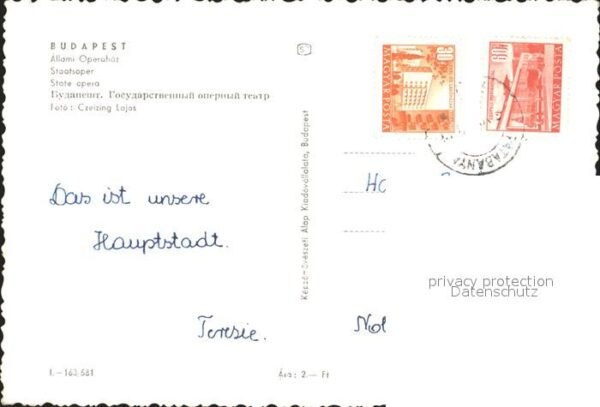 BUDAPEST
Állami Operaház
Staatsoper
State opera
Будапешт. Государственный оперный театр
Fotó: Czeizing Lajos
Das ist unsere
Hauptstadt.
Teresie.
I.-163,581
Ára: 2.— Ft
Képzőművészeti Alap Kiadóvállalata, Budapest
MAGYAR POSTA
MAGYAR POSTA
TATABÁNYA
privacy protection
Datenschutz